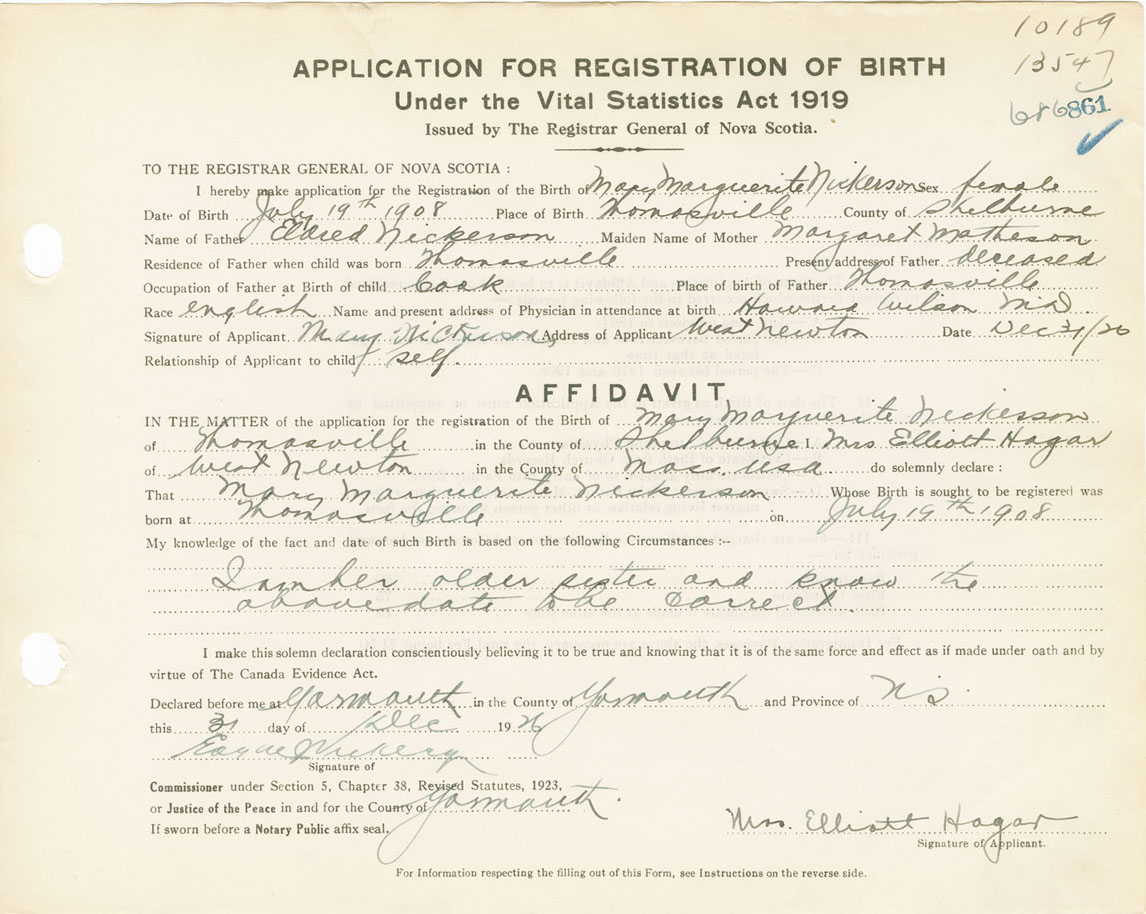 10189
13547
686861
APPLICATION FOR REGISTRATION OF BIRTH
Under the Vital Statistics Act 1919
Issued by The Registrar General of Nova Scotia.
TO THE REGISTRAR GENERAL OF NOVA SCOTIA :
I hereby make application for the Registration of the Birth of Mary Marguerite Nickerson Sex female
Date of Birth July 19th 1908 Place of Birth Thomasville County of Shelburne
Name of Father Eldred Nickerson Maiden Name of Mother Margaret Matheson
Residence of Father when child was born Thomasville Present address of Father deceased
Occupation of Father at Birth of child Cook Place of birth of Father Thomasville
Race english Name and present address of Physician in attendance at birth Howard Wilson M.D
Signature of Applicant Mary Nickerson Address of Applicant West Newton Date Dec 31/26
Relationship of Applicant to child self.
AFFIDAVIT
IN THE MATTER of the application for the registration of Birth of Mary Marguerite Nickerson
of Thomasville in the County of Shelburne I. Mrs. Elliott Hagar
of West Newton in the County of Mass. USA. do solemnly declare :
That Mary Marguerite Nickerson Whose Birth is sought to be registered was
born at Thomasville on July 19th 1908
My knowledge of the fact and date of such Birth is based on the following Circumstances :--
I am her older sister and know the
above date to be correct.
I make this solemn declaration conscientiously believing it to be true and knowing that it is of the same force and effect as if made under oath and by
virtue of The Canada Evidence Act.
Declared before me at Yarmouth in the County of Yarmouth and Province of N.S.
this 31 day of Dec 1926
Signature of
Commissioner under Section 5, Chapter 38, Revised Statutes, 1923,
or Justice of the Peace in and for the County of Yarmouth.
If sworn before a Notary Public affix seal.
Mrs. Elliott Hagar
Signature of Applicant.
For Information respecting the filling out of this Form, see Instructions on the reverse side.